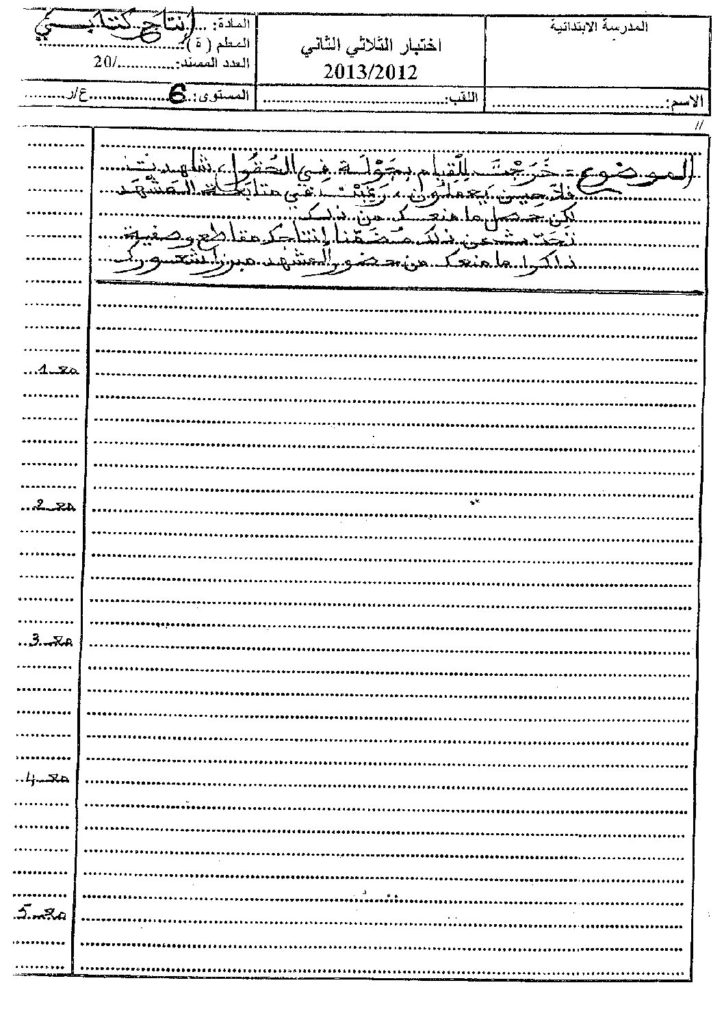 المدرسة الابتدائية
اختبار الثلاثي الثاني
2013/2012
المادة: إنتاج كتابي
المعلم ( ة ):
العدد المسند: /20
الاسم:
اللقب:
المستوى: 6 ع/ر
//
الموضوع: خَرَجْتَ لِلْقيام بِجَوْلَة في الحُقُول، شاهدت
فلاّحين يعملون، رَغِبْتَ في متابعة المشْهَد
لكن حصل ما منعك من ذلك.
تحدّث عن ذلك مُضَمِّنًا إنتاجك مقاطع وصفية
ذاكرا ما منعك من حضور المشهد مبرزا شعورك
مع 1
مع 2
مع 3
مع 4
مع 5